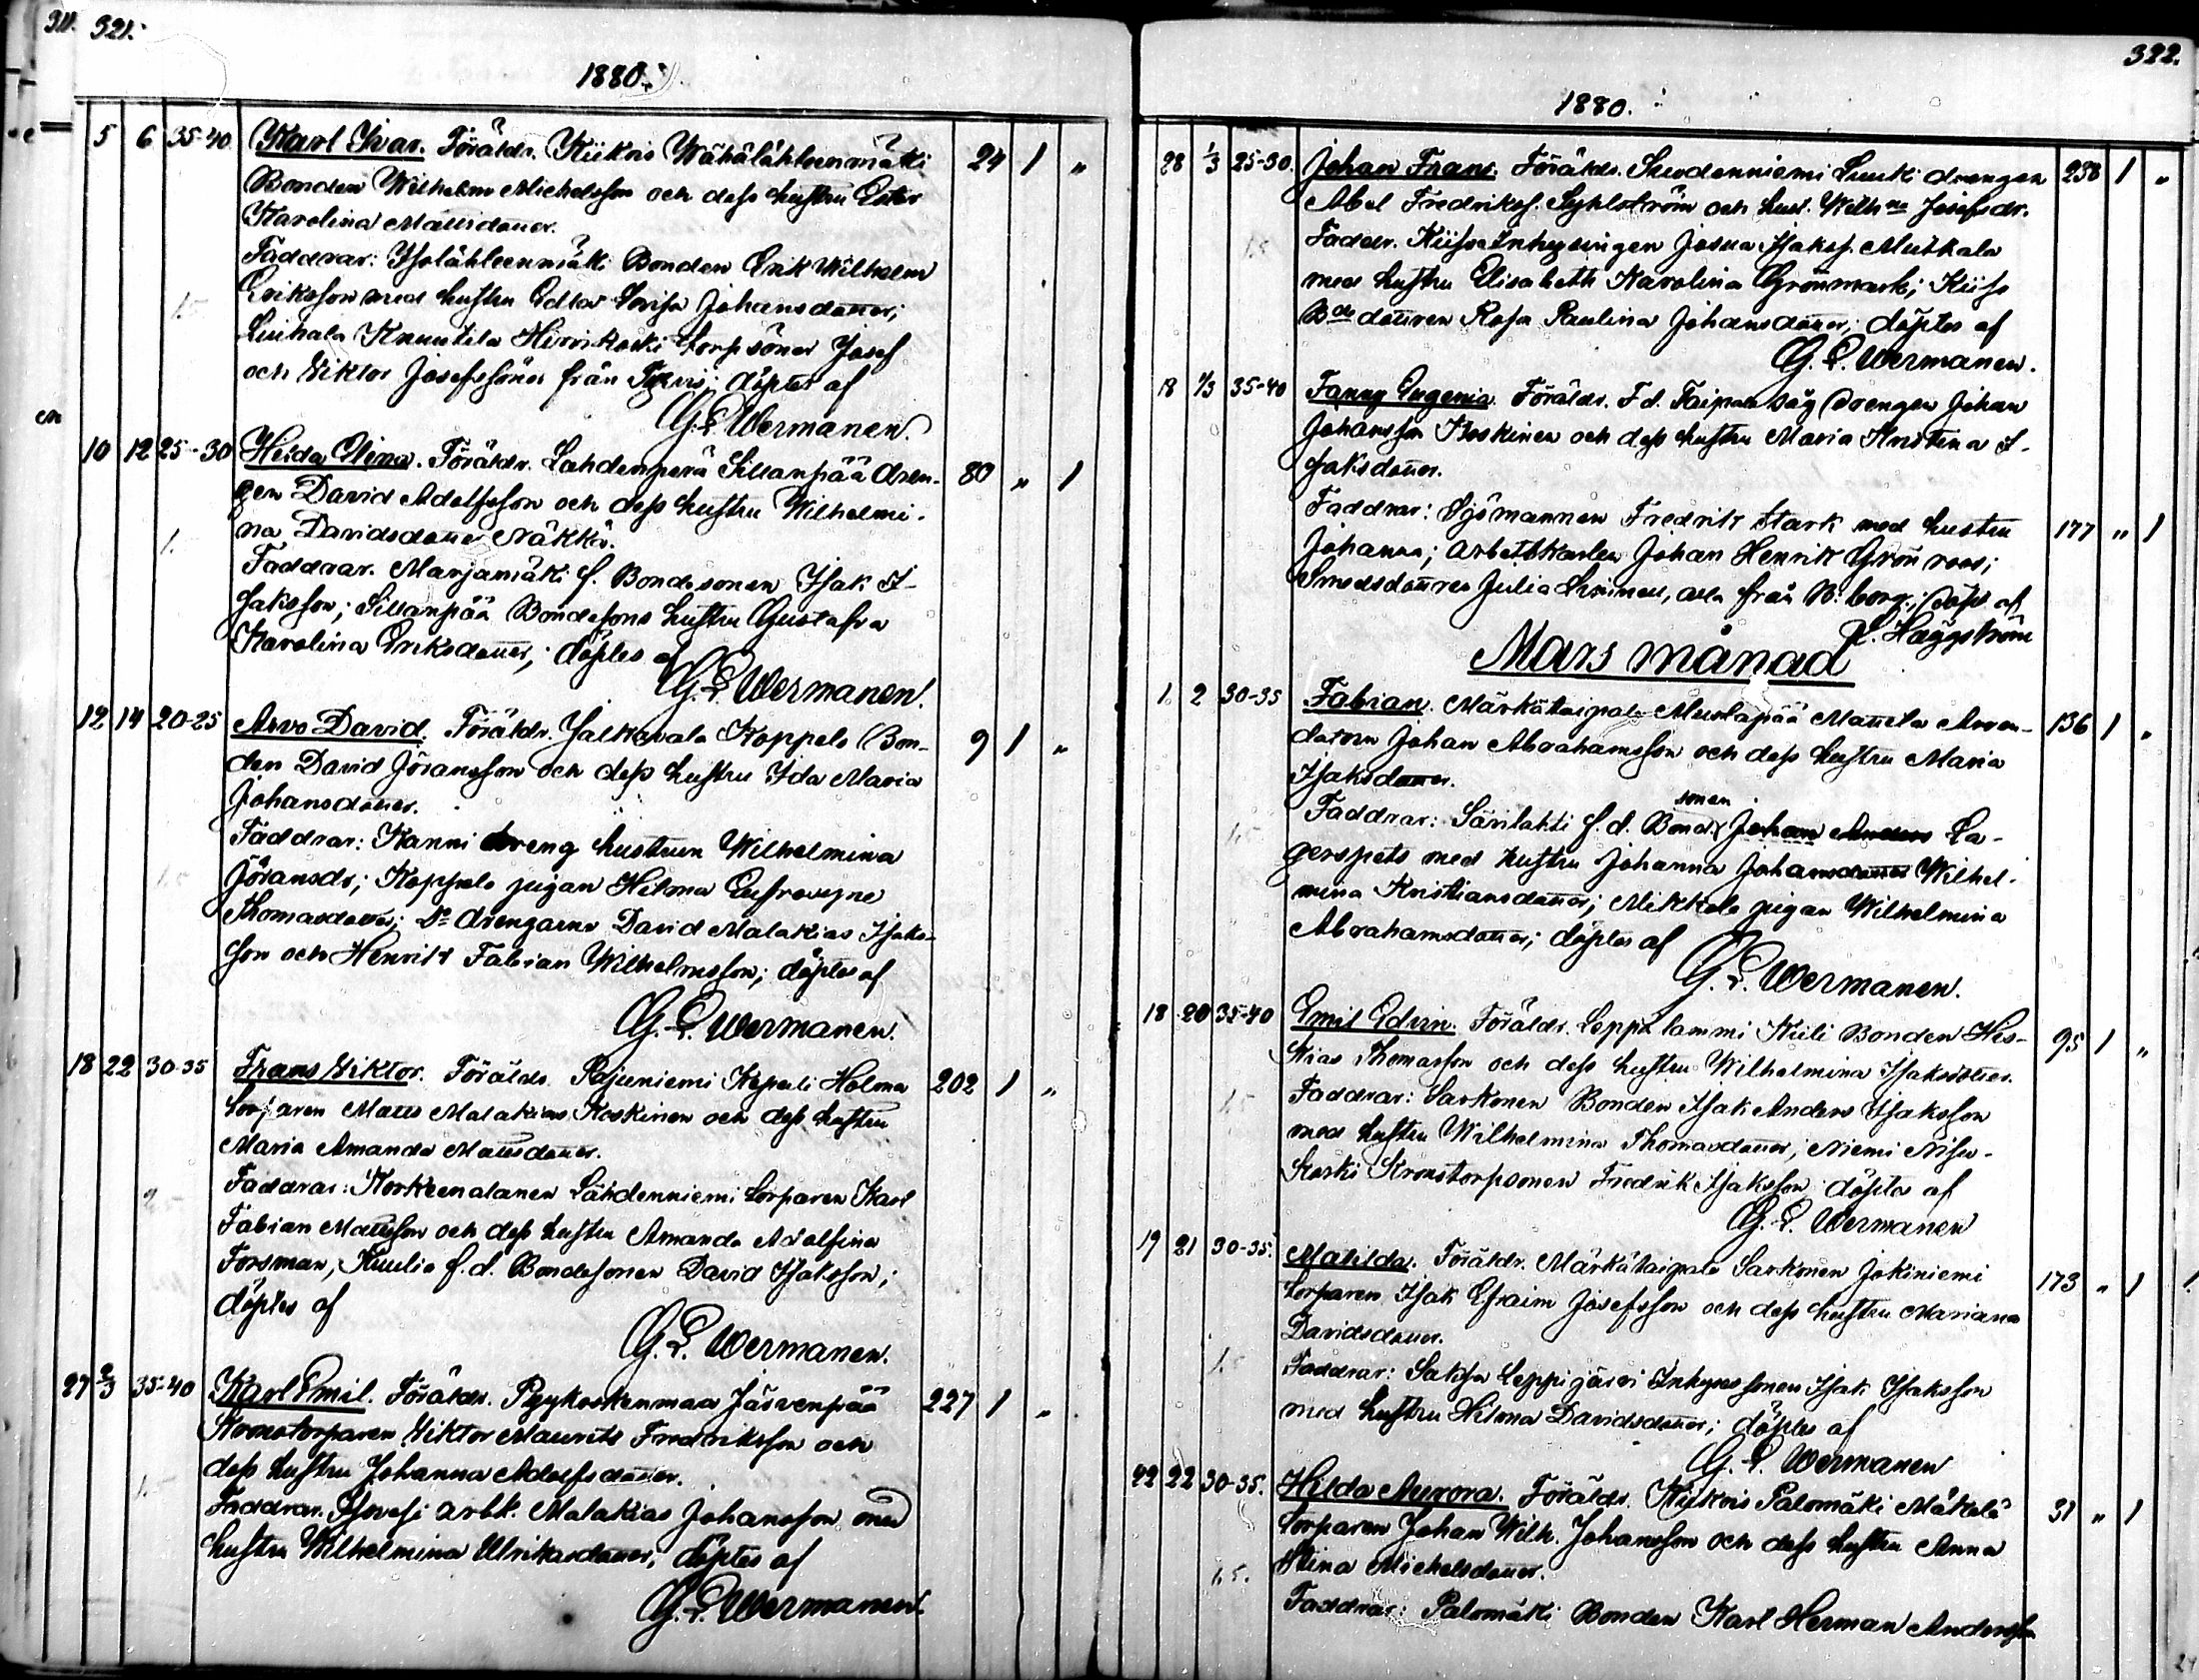 311. 321.
1880.
5 6 35-40 Karl Ivar. Föräldr. Kiikois Wähälähteenmäki 24 1 "
Bonden Wilhelm Michelsson och dess hustru Ester
Karolina Mattsdotter.
Faddrar: Isolähteenmäki Bonden Erik Wilhelm
Eriksson med hustru Edla Lovisa Johansdotter;
Luihala Knuutila Hirvikoski torpsöner Josef
och Viktor Josefssöner från; döptes af
G. L. Wermanen.
10 12 25-30 Heida Olina. Föräldr. Lahdenperä Sillanpää dren- 80 " 1
gen David Adolfsson och dess hustru Wilhelmi-
na Davidsdotter Näkkä.
Faddrar. Marjamäki f. Bondesonen Isak I-
saksson; Sillanpää Bondesons hustru Gustafva
Karolina Eriksdotter; döptes af
G. L. Wermanen.
12 14 20-25 Arvo David. Föräldr. Jalkavala Koppelo Bon- 9 1 "
den David Göransson och dess hustru Ida Maria
Johansdotter.
Faddrar: Kanni dreng hustrun Wilhelmina
Göransdr; Koppelo pigan Helena Eufrosyne
Thomasdotter; Do drengarne David Malakias Isaks-
son och Henrik Fabian Wilhelmsson; döptes af
G. L. Wermanen.
18 22 30-35 Frans Viktor. Föräldr. Pajuniemi Kepuli Holma 202 1 "
torparen Matts Malakias Koskinen och dess hustru
Maria Amanda Mattsdotter.
Faddrar: Korkeenalanen Lähdenniemi torparen Karl
Fabian Mattsson och dess hustru Amanda Adolfina
Forsman, Kuulia f.d. Bondesonen David Isaksson;
döptes af
G. L. Wermanen.
27 2/3 35-40 Karl Emil. Föräldr. Pyykoskenmaa Järvenpää 227 1 "
Kronotorparen Viktor Maurits Fredriksson och
dess hustru Johanna Adolfsdotter.
Faddrar. arbk. Malakias Johansson med
hustru Wilhelmina Ulrikasdotter; döptes af
G. L. Wermanen.
322.
1880.
28 1/3 25-30. Johan Frans. Föräldr. Suodenniemi Luuki drengen 258 1 "
Abel Fredrikss. Syhlström och hust. Wilhna Josefsdr.
Faddr. Kiissa Inhysingen Josua Isakss. Mutkala
med hustru Elisabeth Karolina Grönmark; Kiiss
Bde dottren Rosa Paulina Johansdotter; döptes af
G. L. Wermanen.
18 1/3 35-40 Fanny Eugenia. Föräldr. F.d. Taipale såg drengen Johan
Johansson Koskinen och dess hustru Maria Kristina I-
saksdotter.
Faddrar: Sjömannen Fredrik Stark med hustru 177 " 1
Johanna; arbetskarlen Johan Henrik Grönroos;
Smedsdottren Julia, alla från B:borg; döpt af
Häggström
Mars månad
1. 2 30-35 Fabian. Märkätaipale Mustapää Mattela Arren- 136 1 "
datorn Johan Abrahamsson och dess hustru Maria
Isaksdotter.
sonen
Faddrar: Särilakti f.d. Bond Johan Anders La-
gerspets med hustru Johanna Johansdotter Wilhel-
mina Kristiansdotter; Mikkola pigan Wilhelmina
Abrahamsdotter; döptes af
G. L. Wermanen.
18 20 35-40 Emil Edvin. Föräldr. Leppälammi Kiili Bonden Hes- 95 1 "
kias Thomasson och dess hustru Wilhelmina Isaksdotter.
Faddrar: Sarkonen Bonden Isak Anders Isaksson
med hustru Wilhelmina Thomasdotter, Niemi Nisu-
koski Kronotorpsonen Fredrik Isaksson; döptes af
G. L. Wermanen
19 21 30-35. Matilda. Föräldr. Märkätaipale Sarkonen Jokiniemi 173 " 1
torparen Isak Efraim Josefsson och dess hustru Mariana
Davidsdotter.
Faddrar: Saksa Leppijärvi Inhysessonen Isak Isaksson
med hustru Helena Davidsdotter; döptes af
G. L. Wermanen
22 22 30-35. Hilda Aurora. Föräldr. Kiikois Palomäki Mäkelä 31 " 1
torparen Johan Wilh. Johansson och dess hustru Anna
Stina Michelsdotter.
Faddrar: Palomäki Bonden Karl Herman Andersson